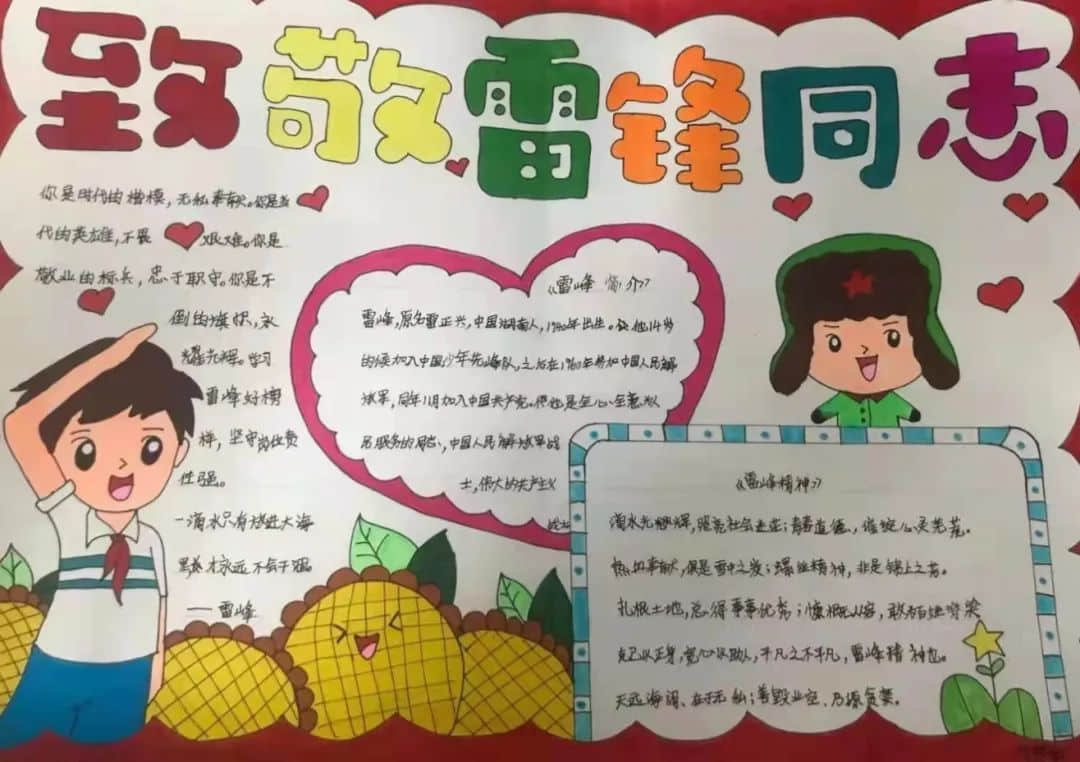 致敬雷锋同志
你是时代的楷模，无私奉献。你是当
代的英雄，不畏艰难。你是
敬业的标兵，忠于职守。你是不
倒的旗帜，永
耀光辉。学习
雷峰好榜
样，坚守岗位责
任强。
一滴水只有放进大海
里才永远不会干涸
——雷峰
《雷峰简介》
雷峰，原名雷正兴，中国湖南人，1940年出生。在他14岁
的候加入中国少年先峰队，之后在1960年参加中国人民解
放军，同年11月加入中国共产党。他也是全心全意为人
民服务的，中国人民解放军战
士，伟大的共产主义
战士
《雷峰精神》
滴水光辉，照亮社会走在；青春道德，绽心灵芜花。
热的奉献，俱是雪中之炭；螺丝精神，非是锦上之花。
扎根土地，总得事事优秀；慷慨从容，敢有百姓夸奖
克己以正身，宽心以助人，平凡之不平凡，雷峰精神也。
天远海阔、在于无私；善毁业空、乃源贪婪。